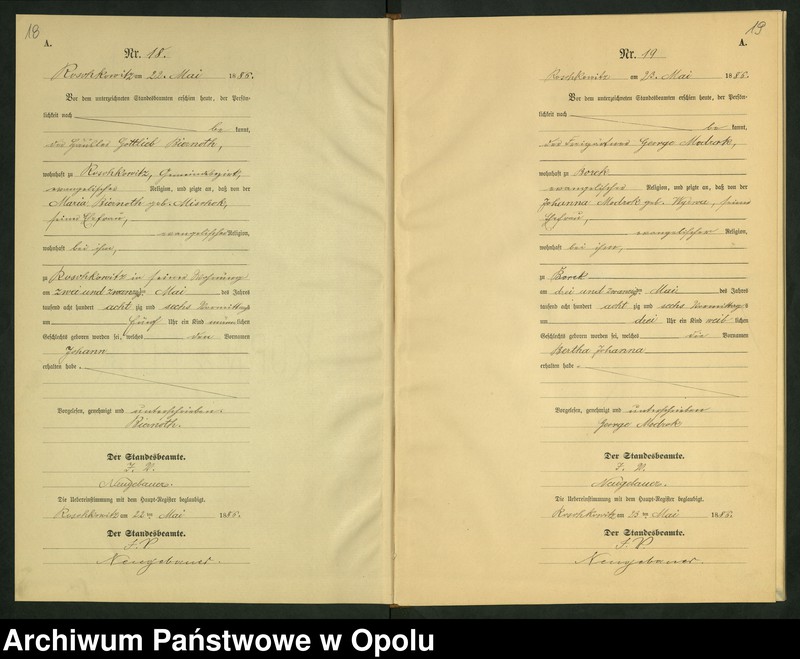 18
A.
Nr. 18.
Roschkowitz am 22. Mai 1886.
Vor dem unterzeichneten Standesbeamten erschien heute, der Persön-
lichkeit nach
be kannt,
der Häusler Gottlieb Biernoth,
wohnhaft zu Roschkowitz, Gemeindebezirk,
evangelischer Religion, und zeigte an, daß von der
Maria Biernoth geb. Mischok,
seiner Ehefrau,
evangelischer Religion,
wohnhaft bei ihm,
zu Roschkowitz in seiner Wohnung
am zwei und zwanzig. Mai des Jahres
tausend acht hundert acht zig und sechs Vormittags
um fünf Uhr ein Kind männ lichen
Geschlechts geboren worden sei, welches den Vornamen
Johann
erhalten habe
Vorgelesen, genehmigt und unterschrieben.
Biernoth.
Der Standesbeamte.
I. V.
Neugebauer.
Die Uebereinstimmung mit dem Haupt-Register beglaubigt.
Roschkowitz am 22ten Mai 1886.
Der Standesbeamte.
I. V
Neugebauer.
19
A.
Nr. 19
Roschkowitz am 23. Mai 1886.
Vor dem unterzeichneten Standesbeamten erschien heute, der Persön-
lichkeit nach
be kannt,
der George Modrok,
wohnhaft zu Borek
evangelischer Religion, und zeigte an, daß von der
Johanna Modrok geb. seiner
Ehefrau,
evangelischer Religion,
wohnhaft bei ihm,
zu Borek
am drei und zwanzig. Mai des Jahres
tausend acht hundert acht zig und sechs Vormittags
um drei Uhr ein Kind weib lichen
Geschlechts geboren worden sei, welches die Vornamen
Bertha Johanna
erhalten habe
Vorgelesen, genehmigt und unterschrieben
George Modrok
Der Standesbeamte.
I. V.
Neugebauer.
Die Uebereinstimmung mit dem Haupt-Register beglaubigt.
Roschkowitz am 23ten Mai 1886.
Der Standesbeamte.
I. V
Neugebauer.
Archiwum Państwowe w Opolu